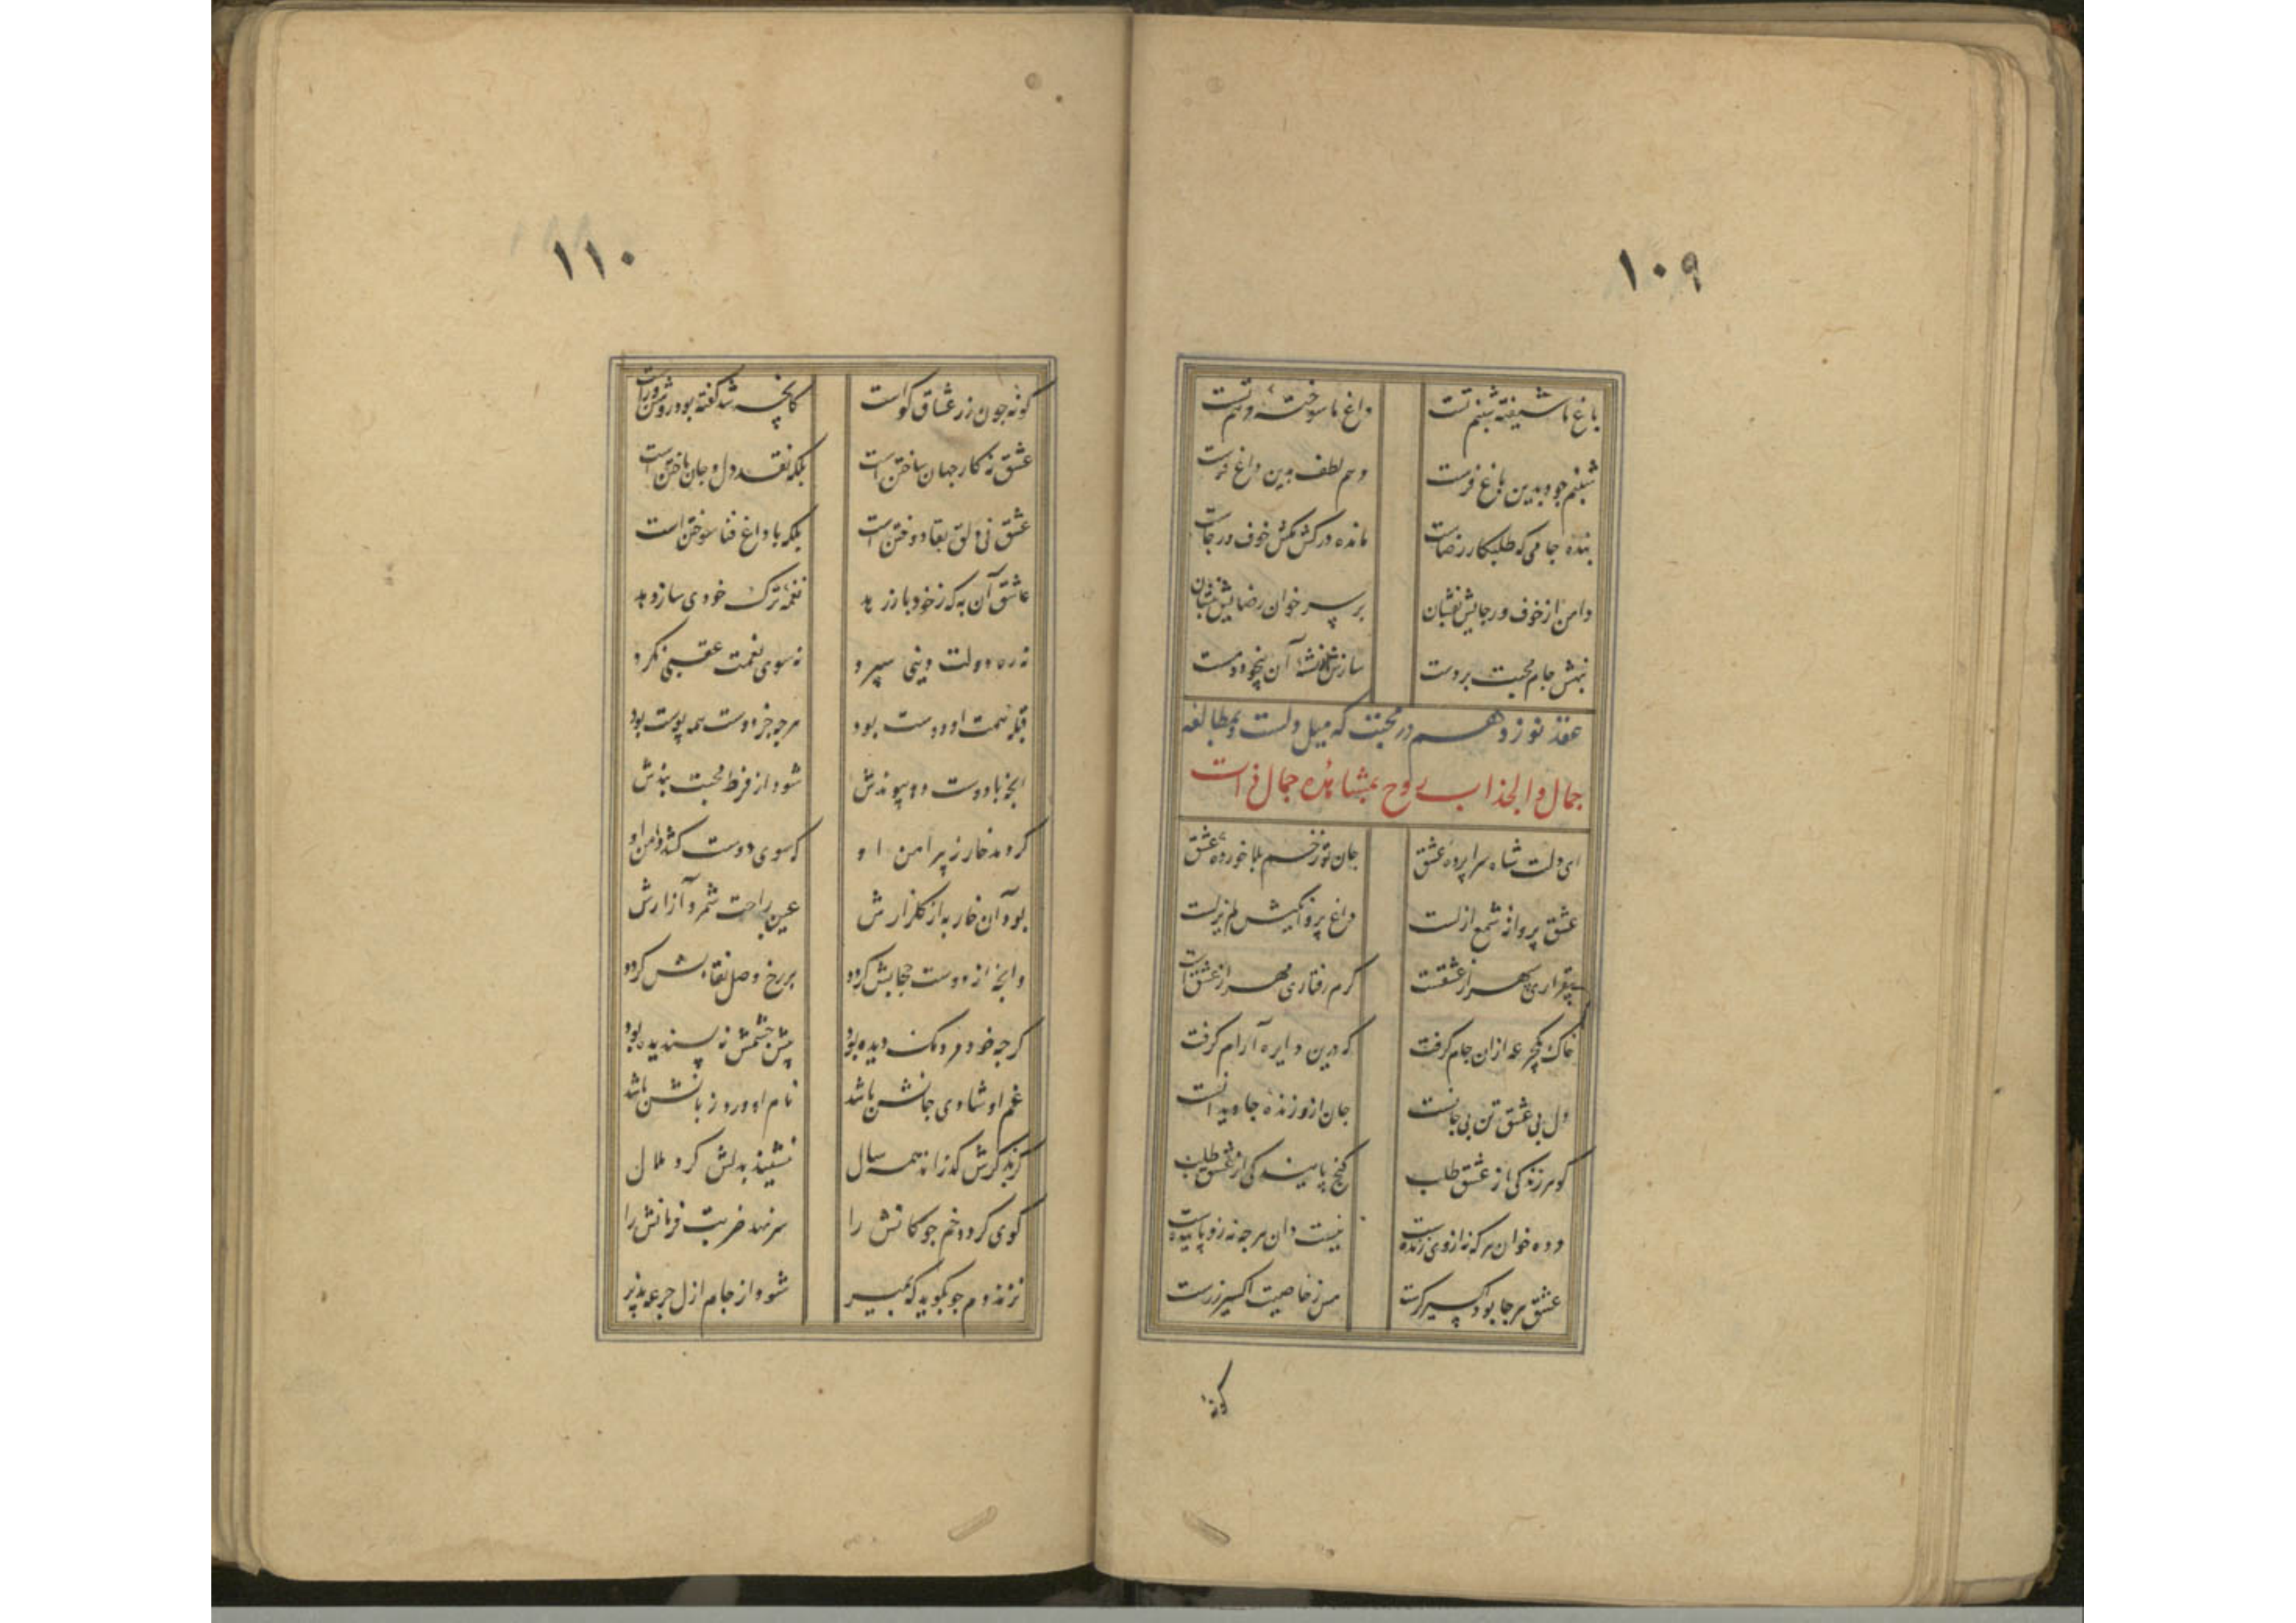 ۱۰۹
باغ ما شیفته شبنم تست داغ ما سوخته مرهم تست
شبنم جود بدین باغ فرست مرهم لطف برین داغ فرست
بنده جامی که طلبکار رضاست مانده در کش مکش خوف و رجاست
دامن از خوف و رجایش بفشان بر سر خوان رضایش بنشان
نهش جام محبت بر دست سازش از نشئه آن بیخود و مست
عقد نوزدهم در محبت که میل دلست بمطالعه
جمال و انجذاب روح بمشاهده جمال ذات
ای دلت شاه سراپرده عشق جان تو زخم بلا خورده عشق
عشق پروانه شمع ازلست داغ پروانگیش لم یزلست
بیقراری سپهر از عشقست گرم رفتاری مهر از عشق است
خاک یک جرعه از ان جام گرفت که درین دایره آرام گرفت
دل بی عشق تن بی جانست جان ازو زنده جاویدانست
گوهر زندگی از عشق طلب گنج پایندگی از عشق طلب
مرده خوان هر که نه از وی زنده ست نیست دان هر چه نه زو پاینده ست
عشق هر جا بود اکسیر گرست مس ز خاصیت اکسیر زرست
گونه
۱۱۰
گونه چون زر عشاق گواست کانچه شد گفته بود روشن و راست
عشق نه کار جهان ساختن است بلکه نقد دل و جان باختن است
عشق نی دلق بقا دوختن است بلکه با داغ فنا سوختن است
عاشق آن به که ز خود باز رهد نغمه ترک خودی ساز دهد
نه ره دولت دینی سپرد نه سوی نعمت عقبی نگرد
قبله همت او دوست بود هر چه جز دوست همه پوست بود
آنچه با دوست دهد پیوندش شود از فرط محبت بندش
گر دمد خار ز پیرامن او که سوی دوست کشد دامن او
بود آن خار به از گلزارش عین راحت شمرد آزارش
وانچه از دوست حجابش گردد بر رخ وصل نقابش گردد
گرچه خود مردمک دیده بود پیش چشمش نه پسندیده بود
غم او شادی جانش باشد نام او ورد زبانش باشد
گر بذکرش گذراند همه سال ننشیند بدلش گرد ملال
گوی گردد خم چوگانش را سر نهد ضربت فرمانش را
نزند دم چو بگوید که بمیر شود از جام ازل جرعه پذیر